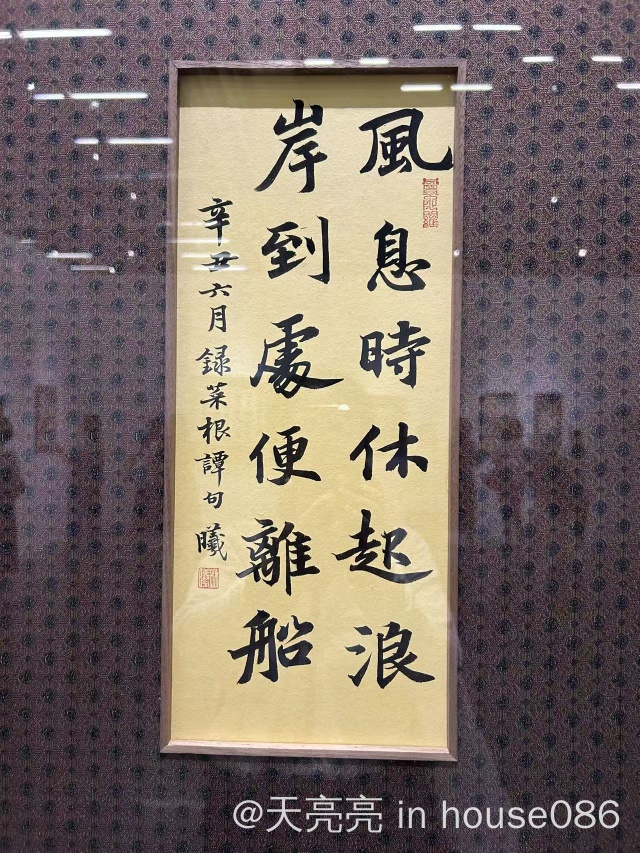 風息時休起浪
岸到處便離船
辛丑六月錄菜根譚句曦
@天亮亮 in house086